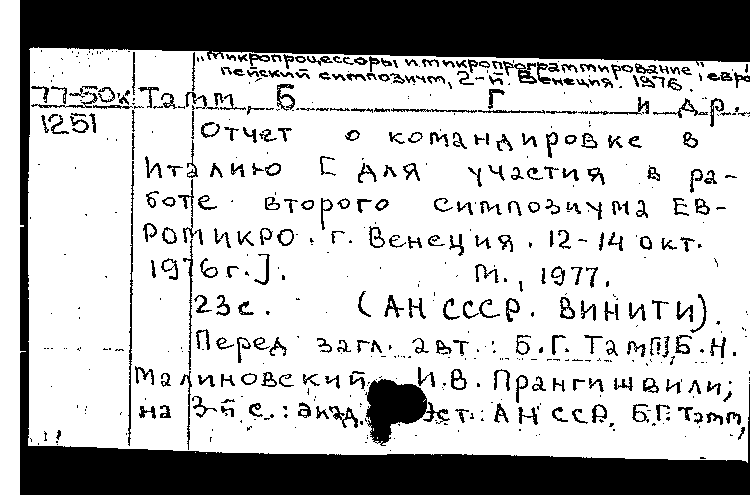 „микропроцессоры и микропрограммирование", евро
пейский симпозиум, 2-й. Венеция. 1976.
77-50к Тамм, Б Г и др.
1251 Отчет о командировке в
Италию [для участия в ра-
боте второго симпозиума ЕВ-
РОМИКРО. г. Венеция. 12-14 окт.
1976г.]. М., 1977.
23с. (АН СССР. ВИНИТИ).
Перед загл. авт.: Б.Г. Тамм, Б.Н.
Малиновский, И.В. Прангишвили;
на 3-й с.: акад. Эст. АН ССР. Б.Г. Тамм,